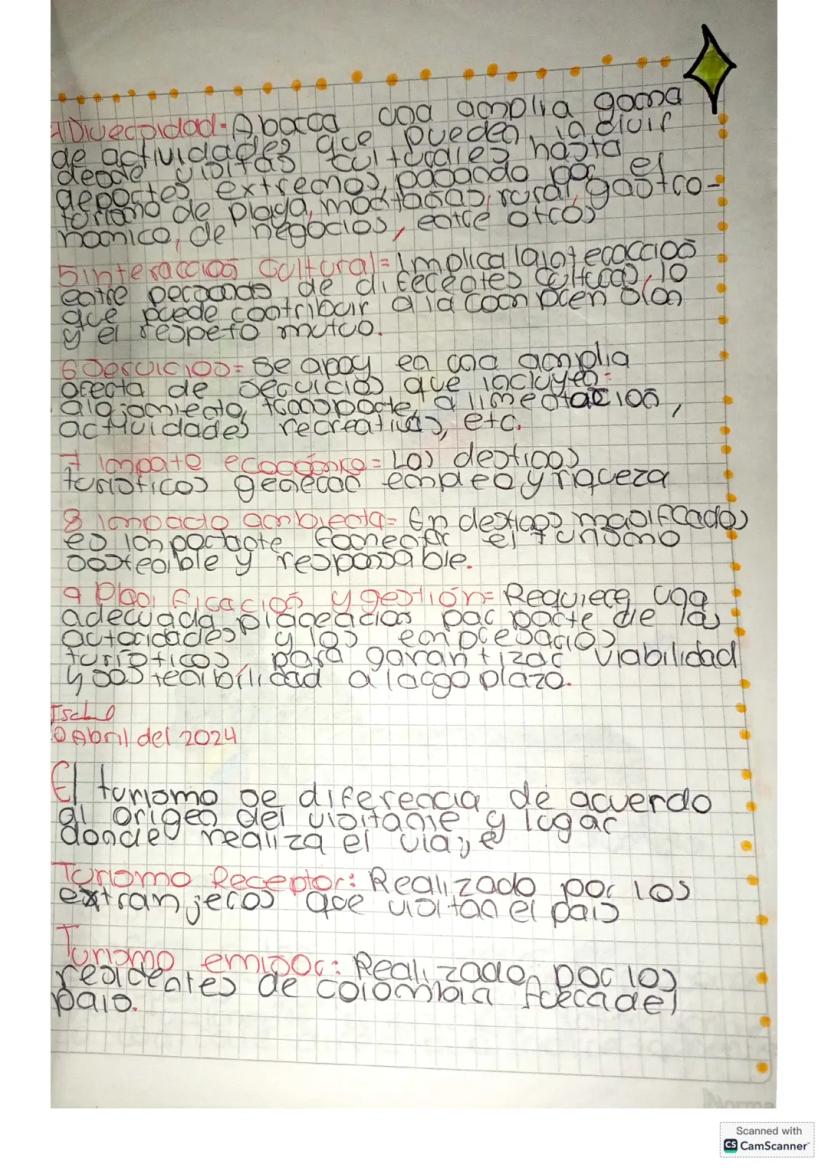 4 Diversidad = Abarca una amplia gama
de actividades que pueden incluir
desde visitas culturales hasta
deportes extremos, pasando por el
turismo de playa, montañas, rural, gastro-
nomico, de negocios, entre otros
5 interacción Cultural = Implica la interacción
entre personas de diferentes culturas, lo
que puede contribuir a la comprensión
y el respeto mutuo.
6 Servicios = Se apoy en una amplia
oferta de servicios que incluyen:
alojamiento, transporte, alimentación,
actividades recreativas, etc.
7 Impato económico = Los destinos
turisticos generan empleo y riqueza
8 Impacto ambienta = En destinos masificados
es importante fomentar el turismo
sostenible y responsable.
9 Planificación y gestión = Requiere una
adecuada planeación por parte de las
autoridades y los empresarios
turisticos, para garantizar viabilidad
y sostenibilidad a largo plazo.
Abril del 2024
El turismo se diferencia de acuerdo
al origen del visitante y lugar
donde realiza el viaje
Turismo Receptor: Realizado por los
extranjeros que visitan el pais
Turismo emisor: Realizado por los
residentes de colombia fuera del
pais.
Norma
Scanned with
CS CamScanner